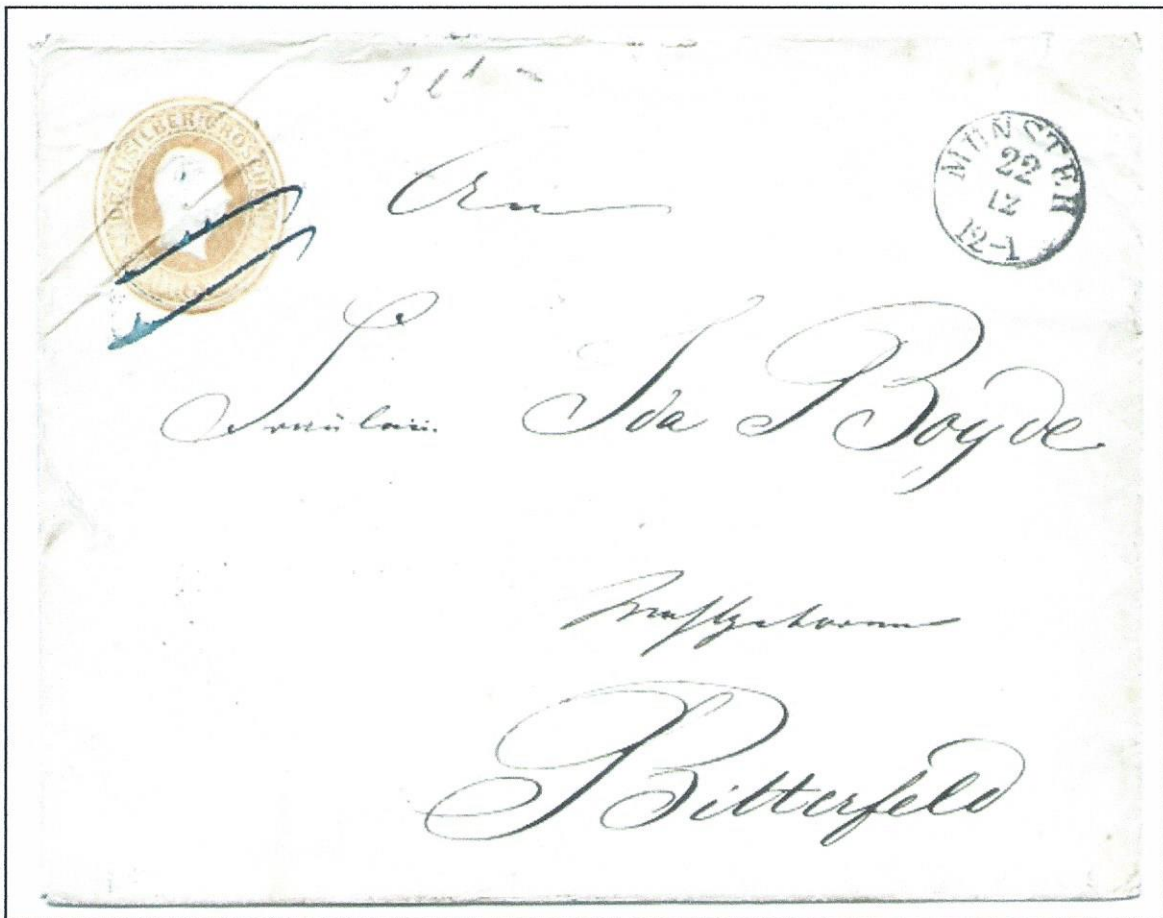 DREI SILBER GROSCHEN
MÜNSTER
22
12
12-1
An
Fräulein Ida Boyde
Bitterfeld